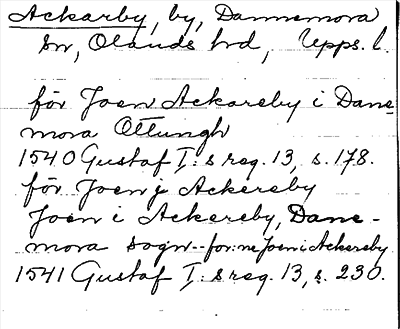 Ackarby, by, Dannemora
sn, Olands hd, Upps. l.
för Joen Ackareby i Dane-
mora Ottungh
1540 Gustaf I:s reg. 13, s. 178.
för Joen j Ackersby
Joen i Ackersby, Dane-
mora sogn--for:ne Joen i Ackersby
1541 Gustaf I:s reg. 13, s. 230.